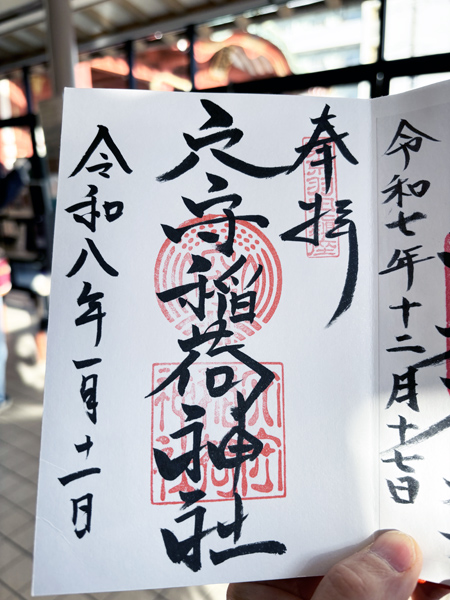 令和七年十二月十七日
奉拝
穴守稲荷神社
令和八年一月十一日